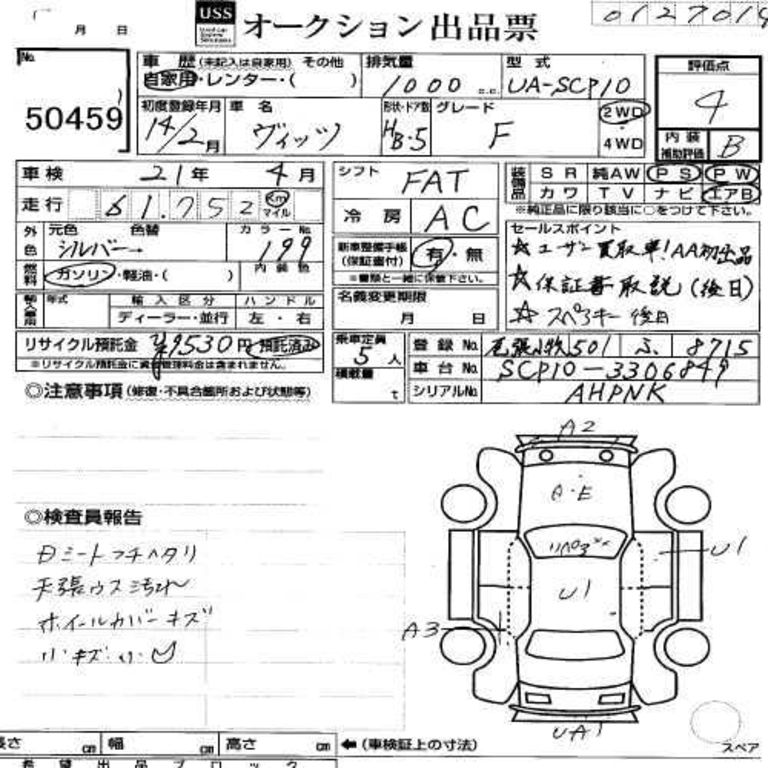 USS オークション 出品票
0127019
月 日
No. 50459
車歴 (未記入は自家用) その他
自家用・レンター・( )
排気量 1000 c.c.
型式 UA-SCP10
評価点 4
内装補助評価 B
初度登録年月 14/2月
車名 ヴィッツ
形状・ドア数 HB・5
グレード F
2WD・4WD
車検 21年 4月
走行 61.752 Km マイル
シフト FAT
冷房 AC
装備品 SR 純AW PS PW
カワ TV ナビ エアB
※純正品に限り該当に○をつけて下さい。
外色 元色 シルバー→ 色替
カラーNo. 199
内装色
燃料 ガソリン・軽油・( )
新車整備手帳(保証書付) 有・無
※書類と一緒に保管下さい。
セールスポイント
☆ユーザー買取車!AA初出品
☆保証書取説(後日)
☆スペアキー後日
年式 輸入区分 ハンドル
ディーラー・並行 左・右
名義変更期限
月 日
リサイクル預託金 ¥9530円 預託済み
※リサイクル預託金に資金管理料金は含まれません。
乗車定員 5人
積載量 t
登録No. 尾張小牧501 ふ 8715
車台No. SCP10-3306849
シリアルNo. AHPNK
◎注意事項 (修復・不具合箇所および状態等)
◎検査員報告
Dミートコチヘタリ
天張ウス汚れ
ホイールカバーキズ
小キズ・小凹
A2
A・E
U1
U1
A3
UA1
スペア
長さ cm 幅 cm 高さ cm ←(車検証上の寸法)
希望出品ブロック